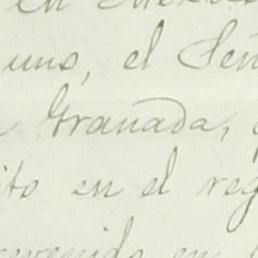 en
uno, el Señ
Granada,
ito en el reg
en